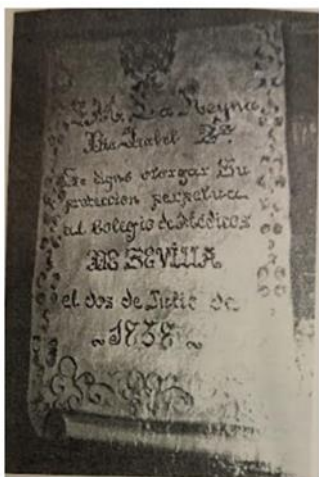 S.M. La Reyna
Dña Isabel 2ª
Se digno otorgar Su
proteccion perpetua
al Colegio de Médicos
DE SEVILLA
el dos de Julio de
~ 1738 ~